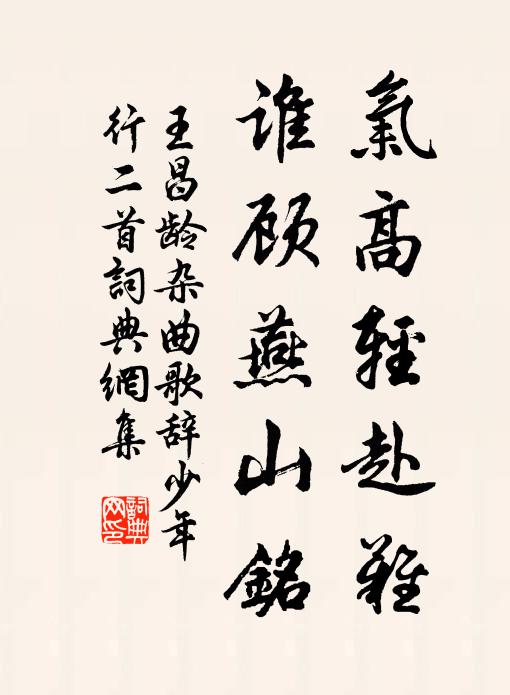 氣高輕赴難
誰顾燕山銘
王昌龄杂曲歌辞少年
行二首詞典網集
詞典
网印